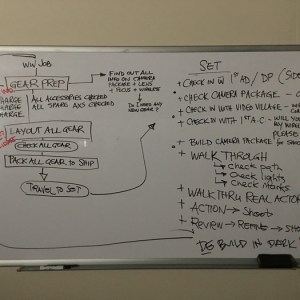 WW JOB
GEAR PREP
ALL ACCESSORIES CHECKED
ALL SPARE AKS CHECKED
LAYOUT ALL GEAR
CHECK ALL GEAR
PACK ALL GEAR TO SHIP
TRAVEL TO SET
FIND OUT ALL
INFO ON CAMERA
PACKAGE + LENS
+ FOCUS + WIRELESS
DO I NEED ANY
NEW GEAR?
SET
+ CHECK IN W/ 1ST AD / DP (SIDE
+ CHECK CAMERA PACKAGE -
+ CHECK IN WITH VIDEO VILLAGE -
+ CHECK IN WITH 1ST A.C - WILL YOU
+ BUILD CAMERA PACKAGE
+ WALK THROUGH
↳ Check path
↳ Check lights
↳ Check marks
+ WALK THRU REAL ACTOR
+ ACTION → Shoot
+ REVIEW → REFINE → SHO
BUILD IN DARK